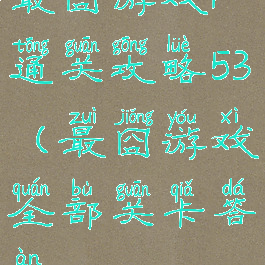 最囧游戏
tōng guān gōng lüè
通关攻略53
zuì jiǒng yóu xì
(最囧游戏
quán bù guān qiǎ dá
全部关卡答
àn